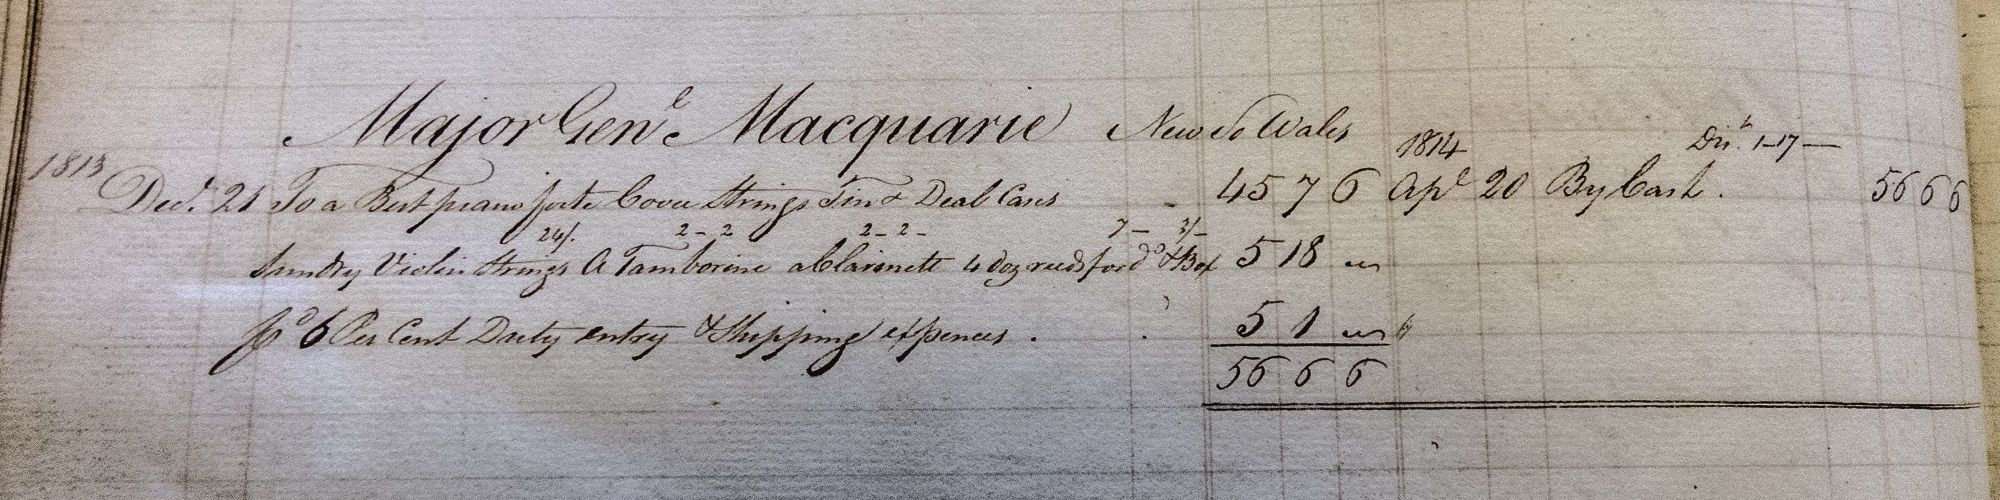 Major Genl. Macquarie New So Wales
1813 1814 Dist. 1-17-
Decr. 21 To a Best piano forte Cover Strings Tin & Deal Cases - 45 7 6 Apl 20 By Cash. 56 6 6
24/. 2-2 2-2- 7- 3/-
Sundry Violin Strings A Tamborine a Clarinett 4 doz reeds for do & Box 5 18 "
pd 6 Per Cent Duty entry & Shipping expences. 5 1 "
56 6 6